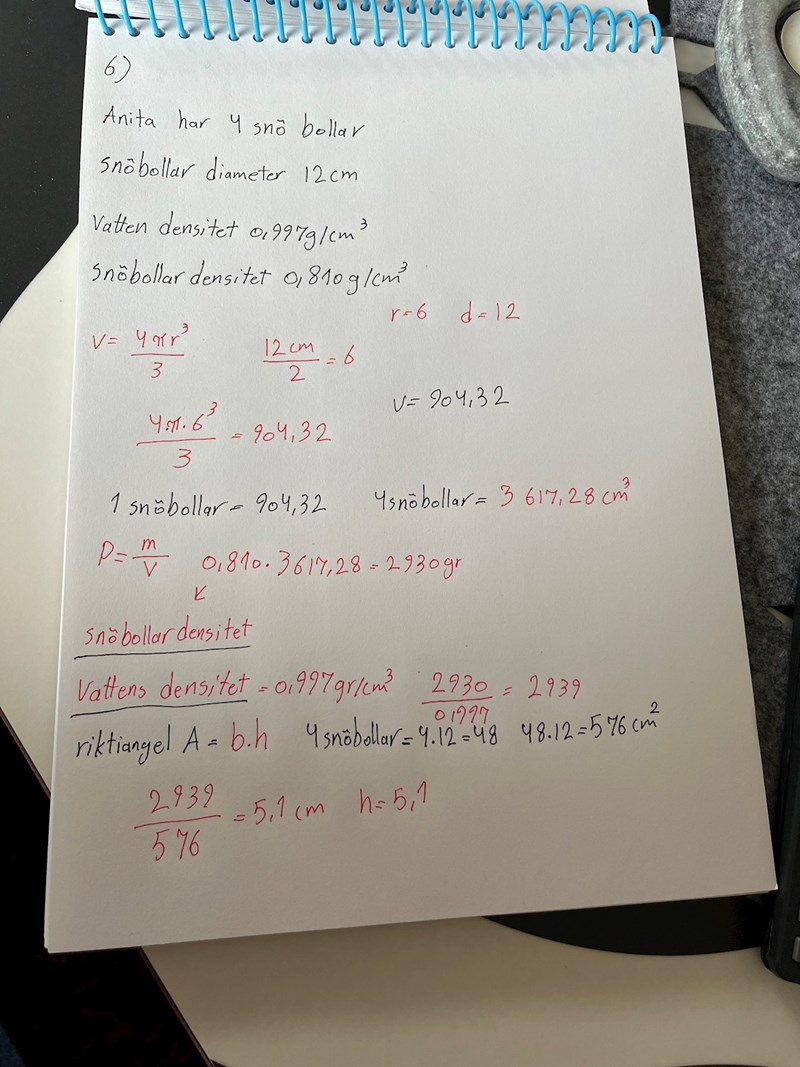 6)
Anita har 4 snö bollar
snöbollar diameter 12cm
Vatten densitet 0,997g/cm³
snöbollar densitet 0,810g/cm³
r=6 d=12
V= 4πr³/3 12cm/2 = 6
V= 904,32
4π·6³/3 = 904,32
1 snöbollar= 904,32 4snöbollar= 3 617,28 cm³
P= m/V 0,810· 3617,28 = 2930gr
↙
snöbollar densitet
Vattens densitet = 0,997gr/cm³ 2930/0,997 = 2939
riktiangel A = b.h 4snöbollar=4.12=48 48.12=576cm²
2939/576 = 5,1 cm h= 5,1